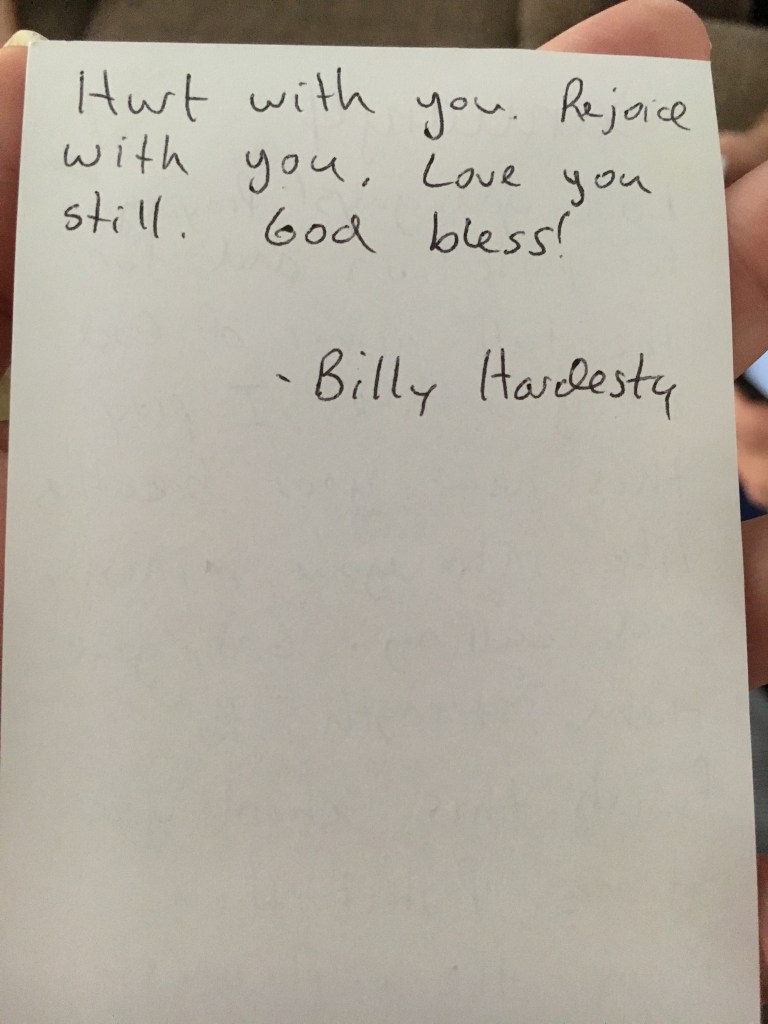 Hurt with you. Rejoice
with you. Love you
still. God bless!
- Billy Hardesty